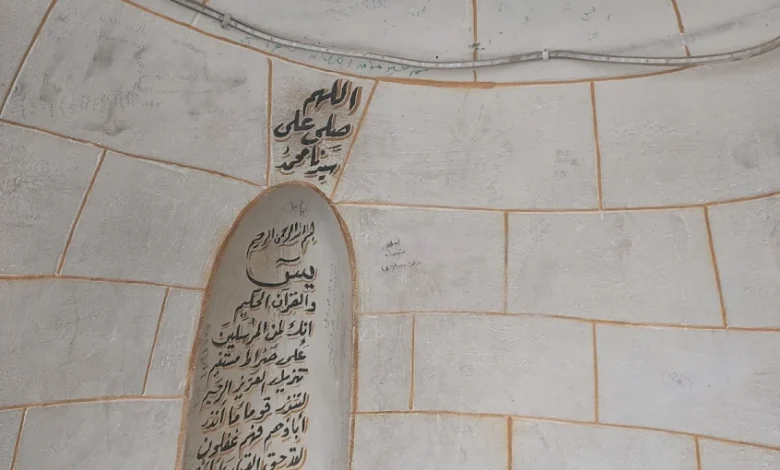 اللهم
صلى على
سيدنا محمد
بسم الله الرحمن الرحيم
يس
والقرآن الحكيم
انك لمن المرسلين
على صراط مستقيم
تنزيل العزيز الرحيم
لتنذر قوما ما انذر
اباؤهم فهم غفلون
لقد حق القول